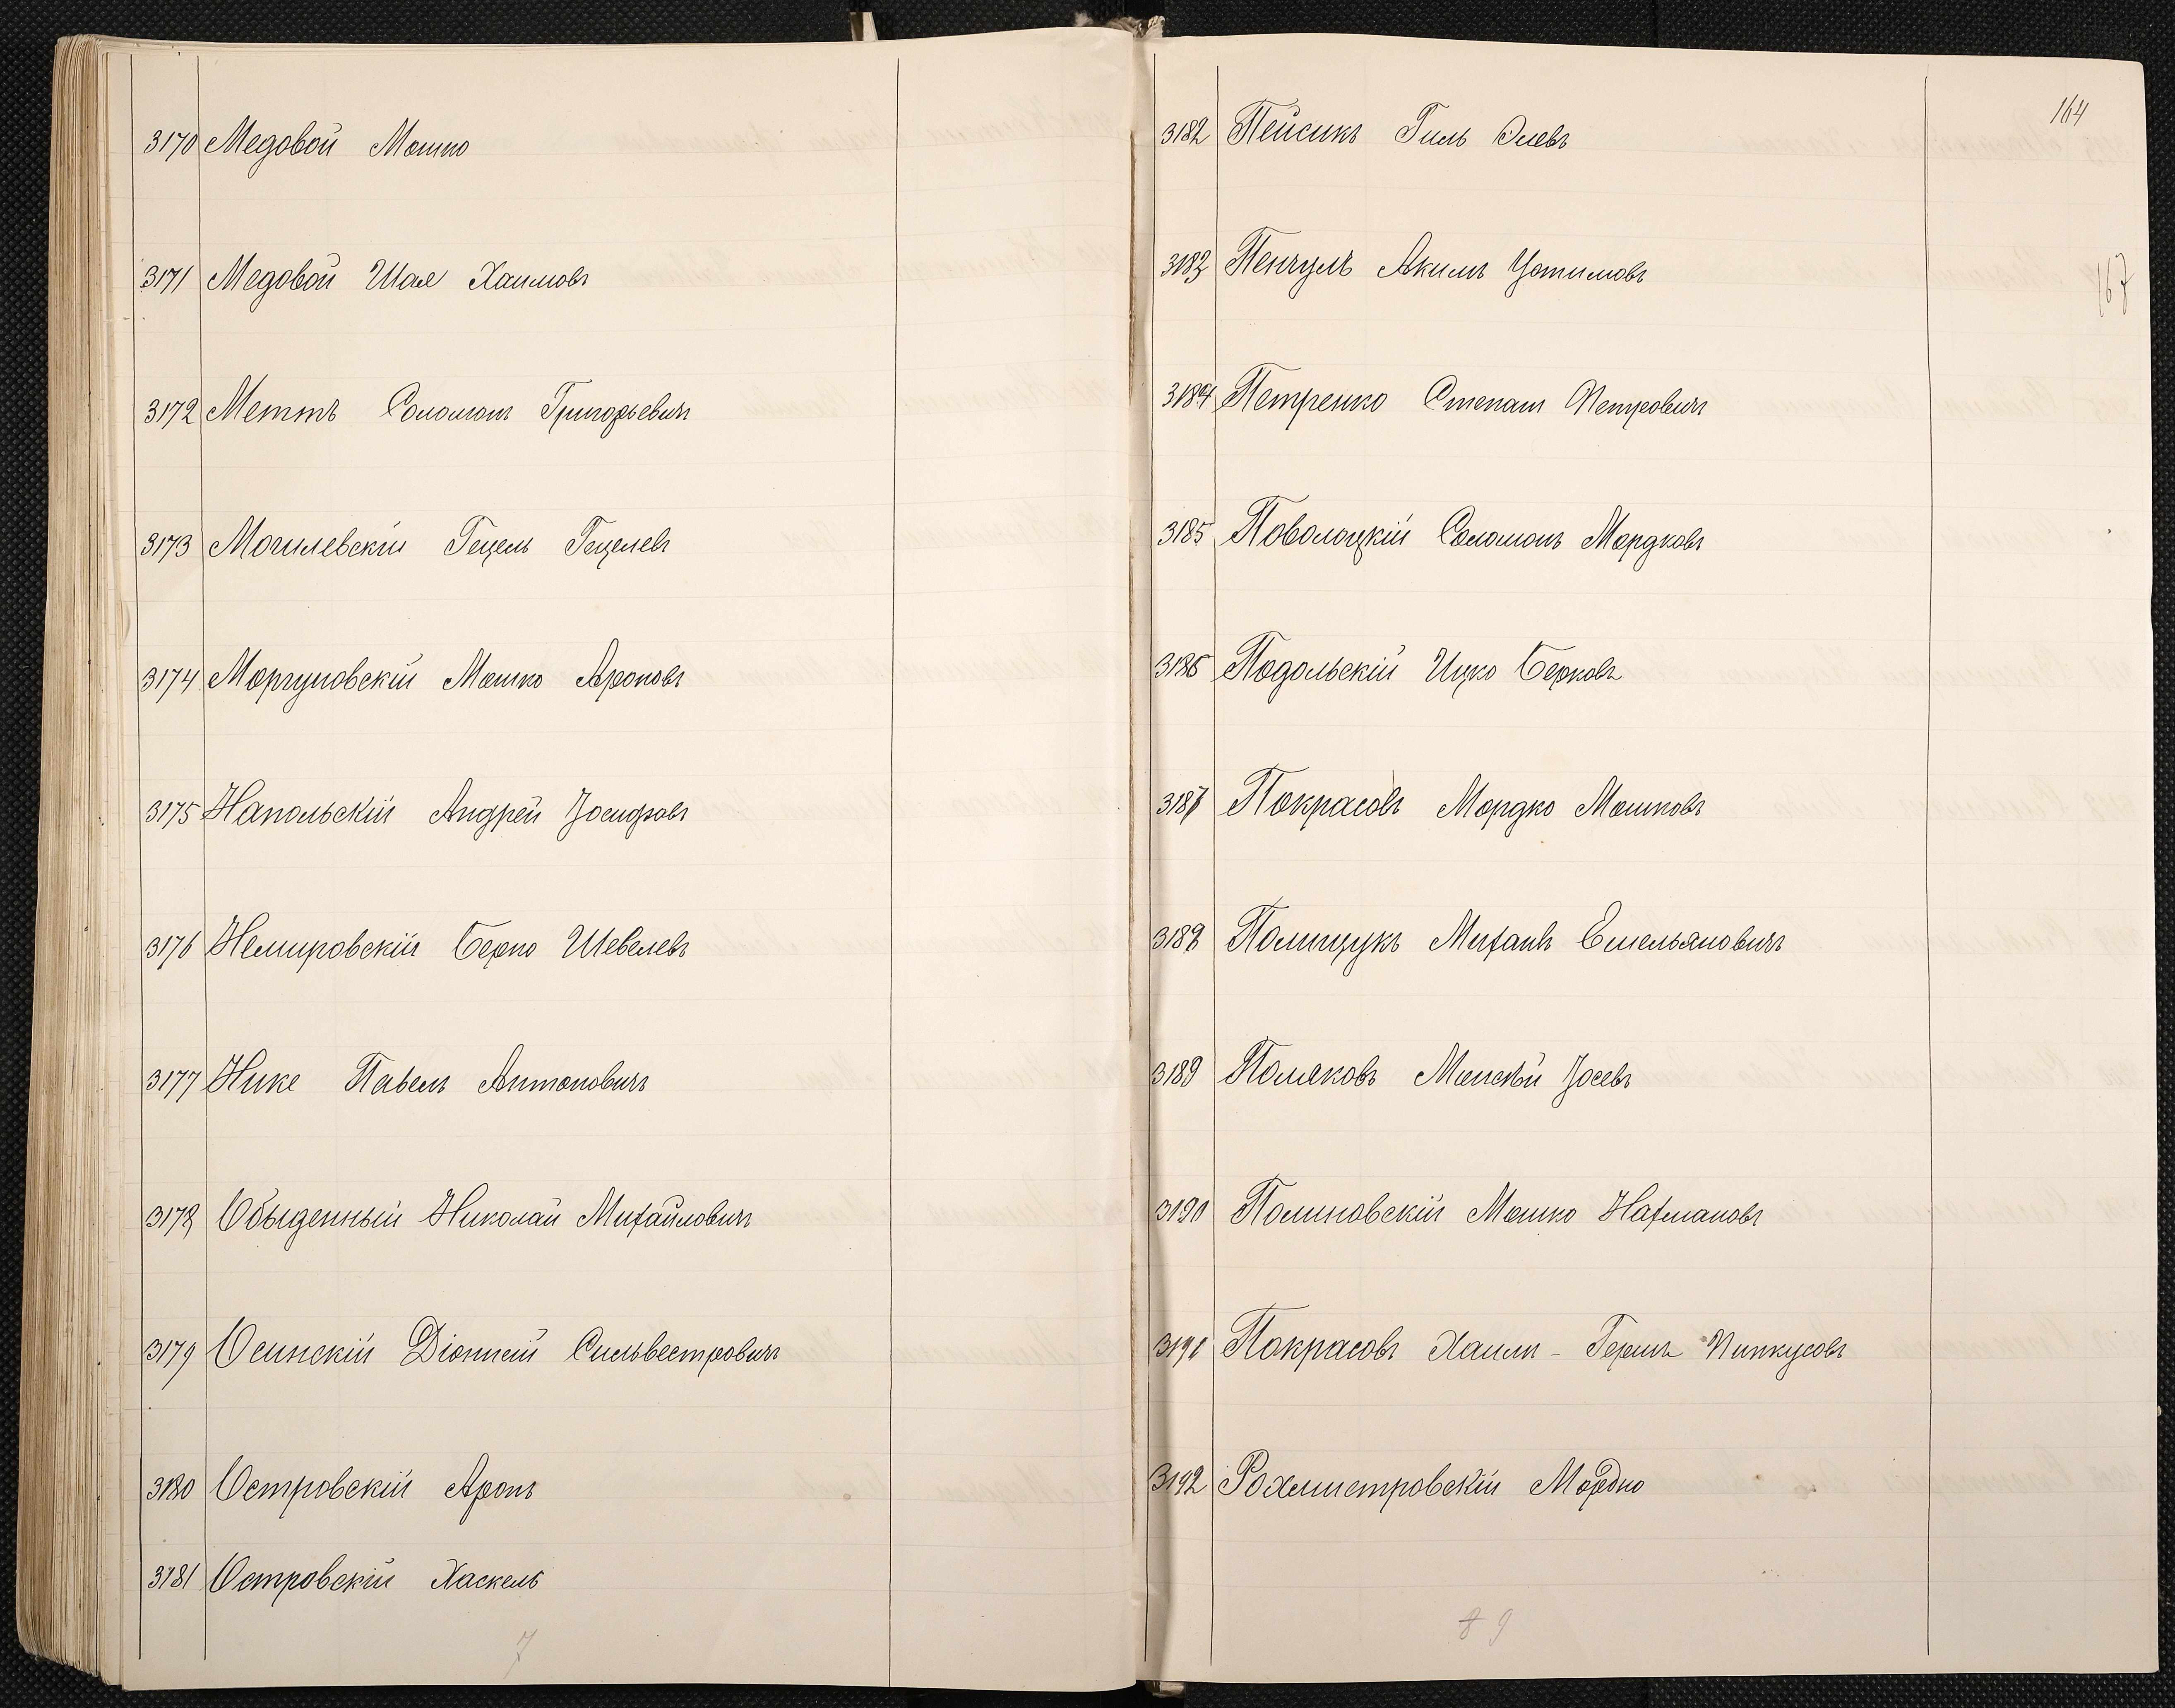 3170 Медовой Мошко
3171 Медовой Шая Хаимовъ
3172 Меттъ Соломонъ Григорьевичъ
3173 Могилевскiй Гецель Гецелевъ
3174 Моргуновскiй Мошко Ароновъ
3175 Напольскiй Андрей Iосифовъ
3176 Немировскiй Берко Шевелевъ
3177 Нике Павелъ Антоновичъ
3178 Обыденный Николай Михайловичъ
3179 Осинскiй Дiонисiй Сильвестровичъ
3180 Островскiй Аронъ
3181 Островскiй Хаскель
7
164
167
3182 Пейсикъ Гиль
3183 Пенчулъ Акимъ
3184 Петренко Степанъ Петровичъ
3185 Поволоцкiй Соломонъ Мордковъ
3186 Подольскiй Ицко Берковъ
3187 Покрасовъ Мордко Мошковъ
3188 Полищукъ Михаилъ Емельяновичъ
3189 Поляковъ Моисѣй Iосевъ
3190 Полиновскiй Мошко Нахмановъ
3191 Покрасовъ Хаимъ - Гершъ Пинкусовъ
3192 Рохмистровскiй Мордко
8 9